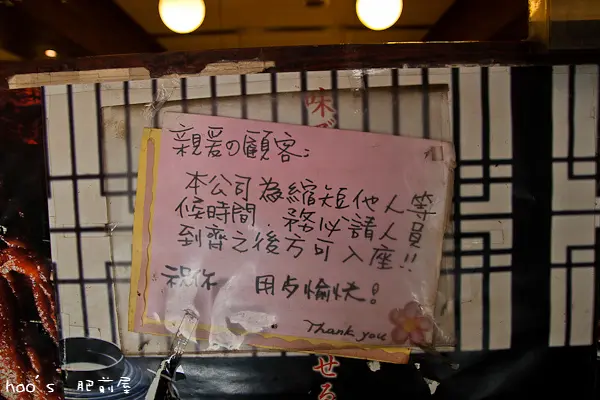 味
親爱の顧客:
本公司為縮短他人等
候時間.務必請人員
到齊之後方可入座!!
祝你 用歺愉快!
Thank you
せる
hoo's 肥前屋